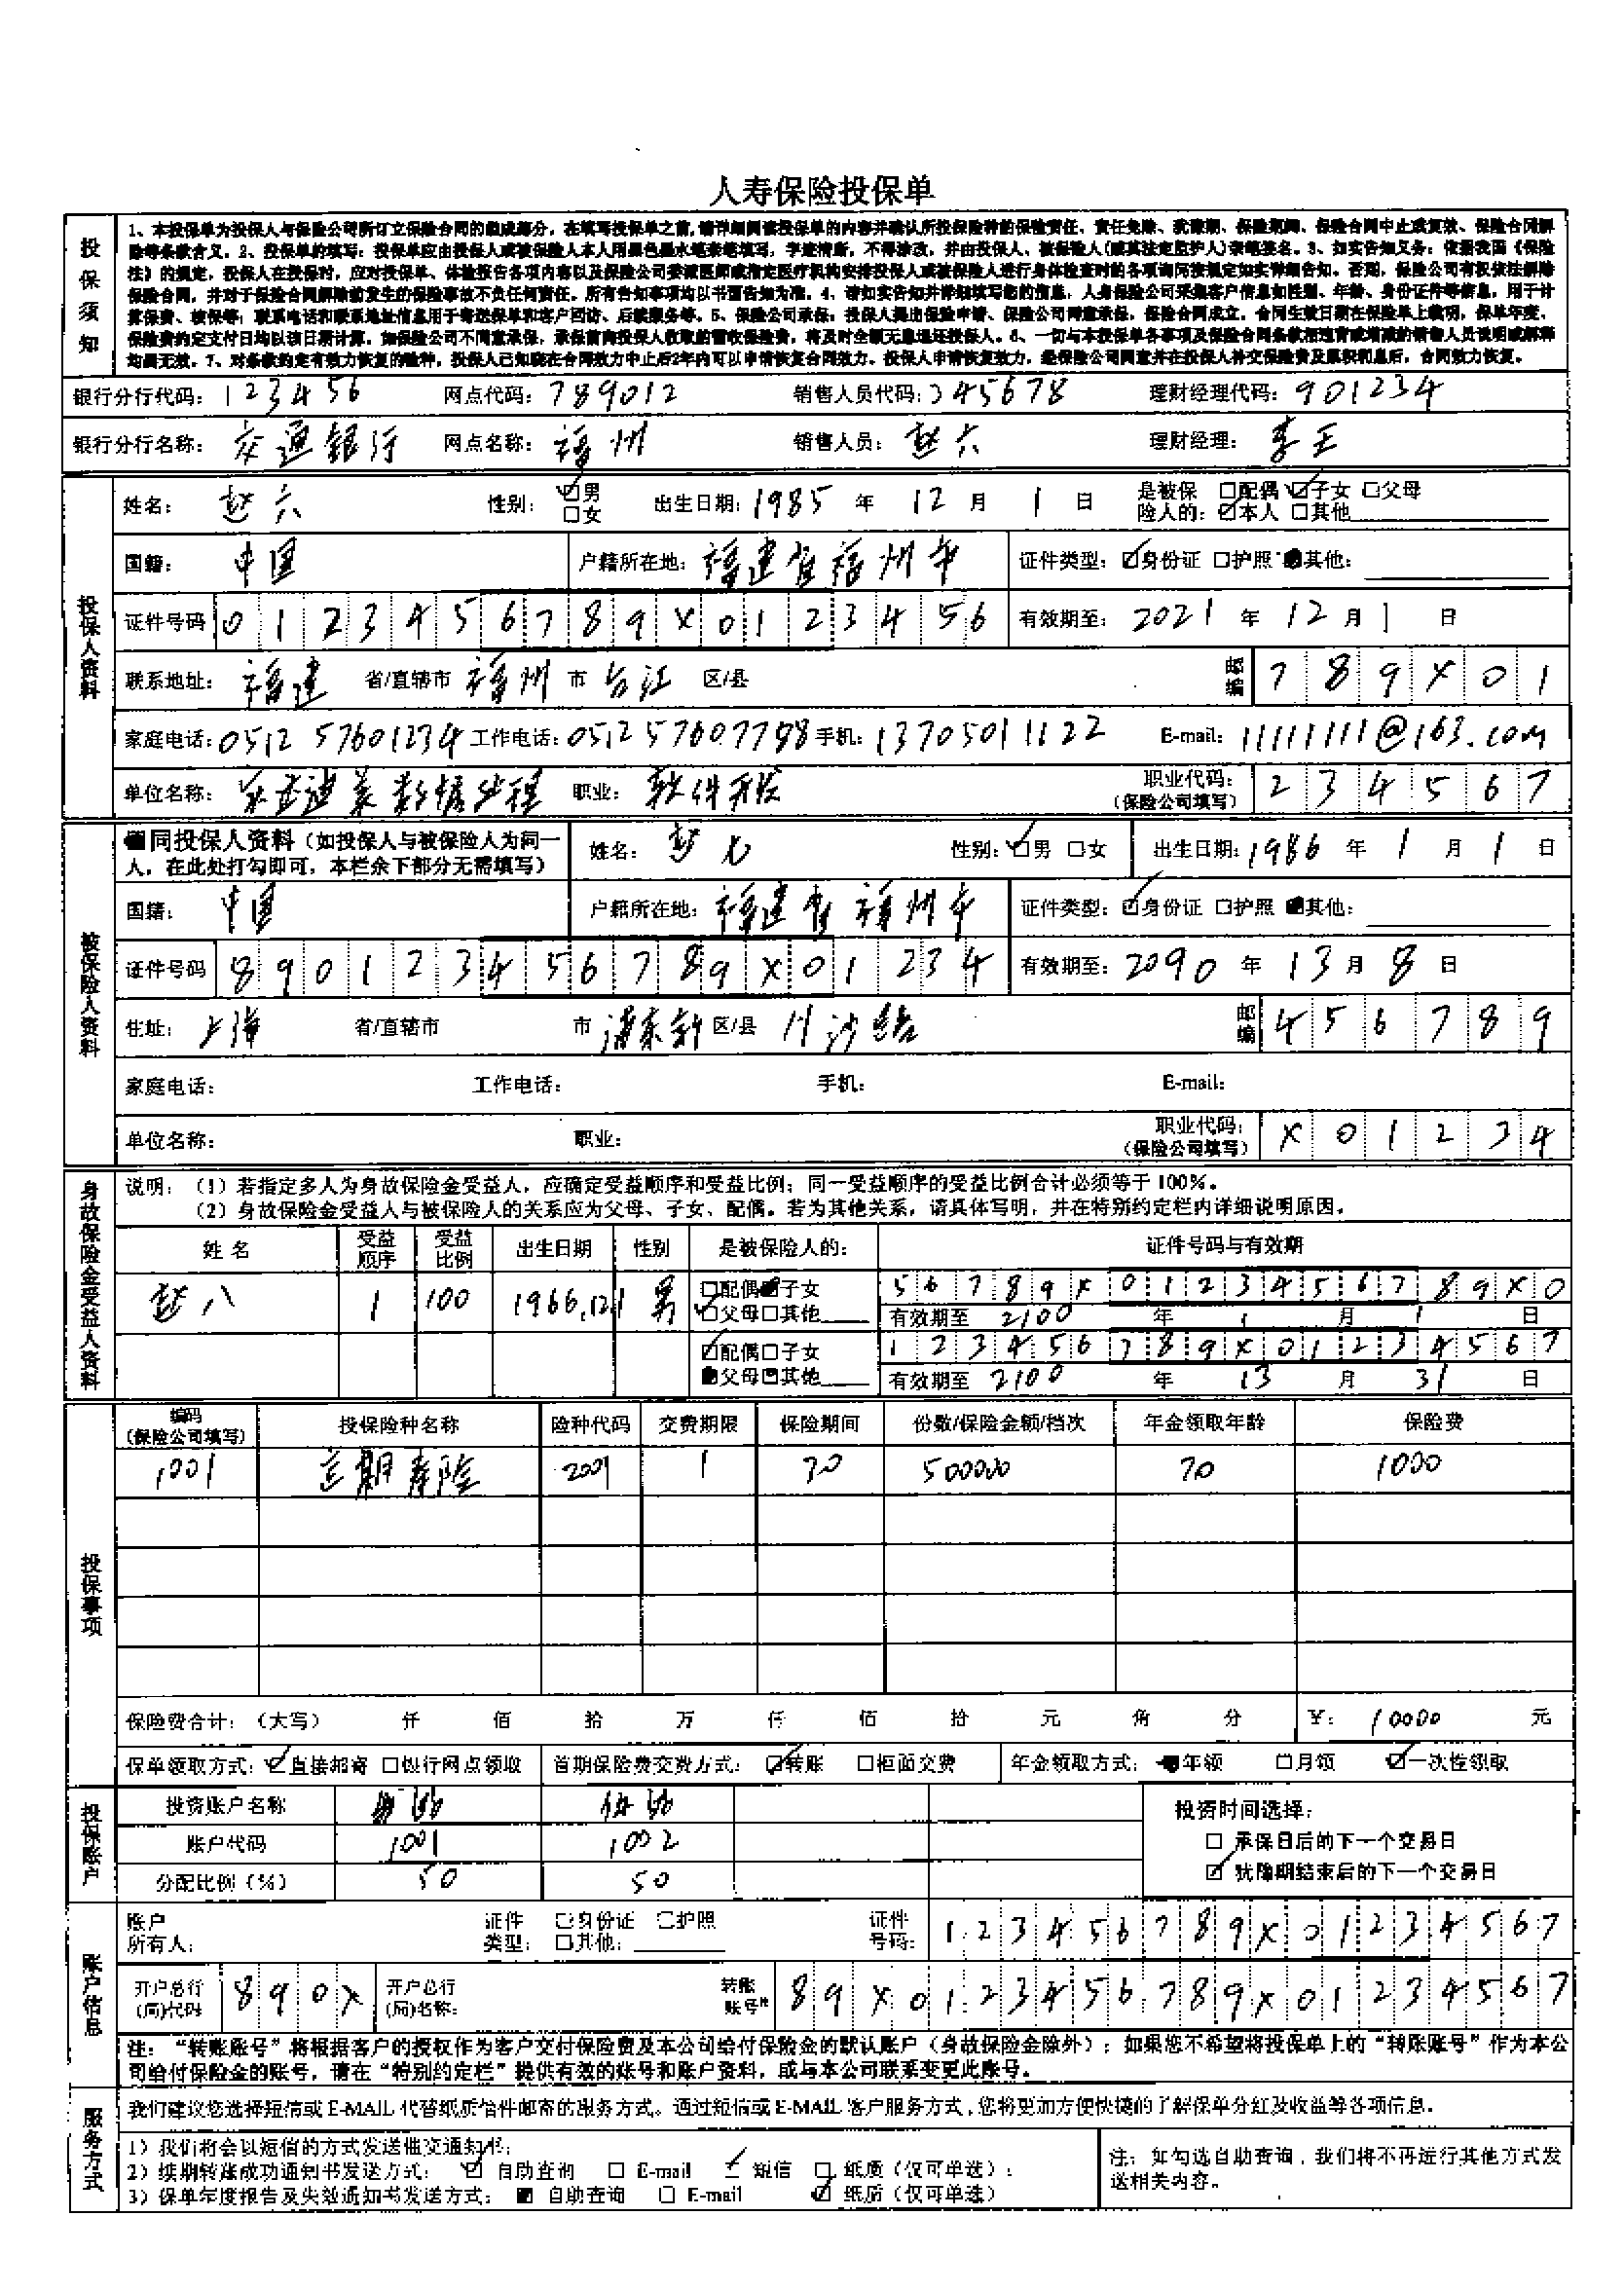 人寿保险投保单
投保须知
1、本投保单为投保人与保险公司所订立保险合同的组成部分，在填写投保单之前,请详细阅读投保单的内容并确认所投保险种的保险责任、责任免除、犹豫期、保险期间、保险合同中止或复效、保险合同解
除等条款含义。2、投保单的填写：投保单应由投保人或被保险人本人用黑色墨水笔亲笔填写，字迹清晰，不得涂改，并由投保人、被保险人(或其法定监护人)亲笔签名。3、如实告知义务：依据我国《保险
法》的规定，投保人在投保时，应对投保单、体检报告各项内容以及保险公司委派医师或指定医疗机构安排投保人或被保险人进行身体检查时的各项询问按规定如实详细告知。否则，保险公司有权依法解除
保险合同，并对于保险合同解除前发生的保险事故不负任何责任。所有告知事项均以书面告知为准。4、请如实告知并详细填写您的信息：人身保险公司采集客户信息如性别、年龄、身份证件等信息，用于计
算保费、核保等；联系电话和联系地址信息用于寄送保单和客户回访、后续服务等。5、保险公司承保：投保人提出保险申请、保险公司同意承保，保险合同成立。合同生效日期在保险单上载明，保单年度、
保险费约定支付日均以该日期计算。如保险公司不同意承保，承保前向投保人收取的预收保险费，将及时全额无息退还投保人。6、一切与本投保单各事项及保险合同条款相违背或增减的销售人员说明或解释
均属无效。7、对条款约定有效力恢复的险种，投保人已知晓在合同效力中止后2年内可以申请恢复合同效力、投保人申请恢复效力，经保险公司同意并在投保人补交保险费及累积利息后，合同效力恢复。
银行分行代码：123456 网点代码：789012 销售人员代码：345678 理财经理代码：901234
银行分行名称：交通银行 网点名称：福州 销售人员：赵六 理财经理：李王
投保人资料
姓名：赵六 性别：☑男 □女 出生日期：1985 年 12 月 1 日 是被保险人的：□配偶 ☑子女 □父母 ☑本人 □其他
国籍：中国 户籍所在地：福建省福州市 证件类型：☑身份证 □护照 ■其他：
证件号码 0123456789X0123456 有效期至：2021 年 12 月 1 日
联系地址：福建 省/直辖市 福州 市 台江 区/县 邮编 789X01
家庭电话：0512 57601234 工作电话：0512 57607788 手机：13705011122 E-mail：11111111@163.com
单位名称： 职业：软件开发 职业代码：（保险公司填写） 234567
被保险人资料
■同投保人资料（如投保人与被保险人为同一人，在此处打勾即可，本栏余下部分无需填写） 姓名：赵 性别：☑男 □女 出生日期：1986 年 1 月 1 日
国籍：中国 户籍所在地：福建省福州市 证件类型：☑身份证 □护照 ■其他：
证件号码 890123456789X01234 有效期至：2090 年 13 月 8 日
住址：上海 省/直辖市 市 浦东新 区/县 川沙路 邮编 456789
家庭电话： 工作电话： 手机： E-mail：
单位名称： 职业： 职业代码：（保险公司填写） X01234
身故保险金受益人资料
说明：（1）若指定多人为身故保险金受益人，应确定受益顺序和受益比例；同一受益顺序的受益比例合计必须等于 100%。
（2）身故保险金受益人与被保险人的关系应为父母、子女、配偶。若为其他关系，请具体写明，并在特别约定栏内详细说明原因。
姓 名 受益顺序 受益比例 出生日期 性别 是被保险人的： 证件号码与有效期
赵八 1 100 1966.12.1 男 □配偶■子女 56789X0123456789X0
☑父母□其他 有效期至 2100 年 1 月 1 日
☑配偶□子女 123456789X01234567
■父母■其他 有效期至 2100 年 13 月 31 日
投保事项
编码（保险公司填写） 投保险种名称 险种代码 交费期限 保险期间 份数/保险金额/档次 年金领取年龄 保险费
1001 定期寿险 2001 1 70 500000 70 1000
保险费合计：（大写） 仟 佰 拾 万 仟 佰 拾 元 角 分 ￥：10000 元
保单领取方式：☑直接邮寄 □银行网点领取 首期保险费交费方式：☑转账 □柜面交费 年金领取方式：■年领 □月领 ☑一次性领取
投保账户
投资账户名称 投资时间选择：
账户代码 1001 1002 □ 承保日后的下一个交易日
分配比例（%） 50 50 ☑ 犹豫期结束后的下一个交易日
账户信息
账户所有人： 证件类型：□身份证 □护照 □其他： 证件号码：123456789X01234567
开户总行(局)代码 890X 开户总行(局)名称： 转账账号* 89X0123456789X01234567
注：“转账账号”将根据客户的授权作为客户交付保险费及本公司给付保险金的默认账户（身故保险金除外）；如果您不希望将投保单上的“转账账号”作为本公
司给付保险金的账号，请在“特别约定栏”提供有效的账号和账户资料，或与本公司联系变更此账号。
服务方式
我们建议您选择短信或 E-MAIL 代替纸质信件邮寄的服务方式。通过短信或 E-MAIL 客户服务方式，您将更加方便快捷的了解保单分红及收益等各项信息。
1）我们将会以短信的方式发送催交通知书；
2）续期转账成功通知书发送方式：☑ 自助查询 □ E-mail ☑ 短信 □ 纸质（仅可单选）；
3）保单年度报告及失效通知书发送方式：■ 自助查询 □ E-mail ☑ 纸质（仅可单选）
注：如勾选自助查询，我们将不再进行其他方式发
送相关内容。